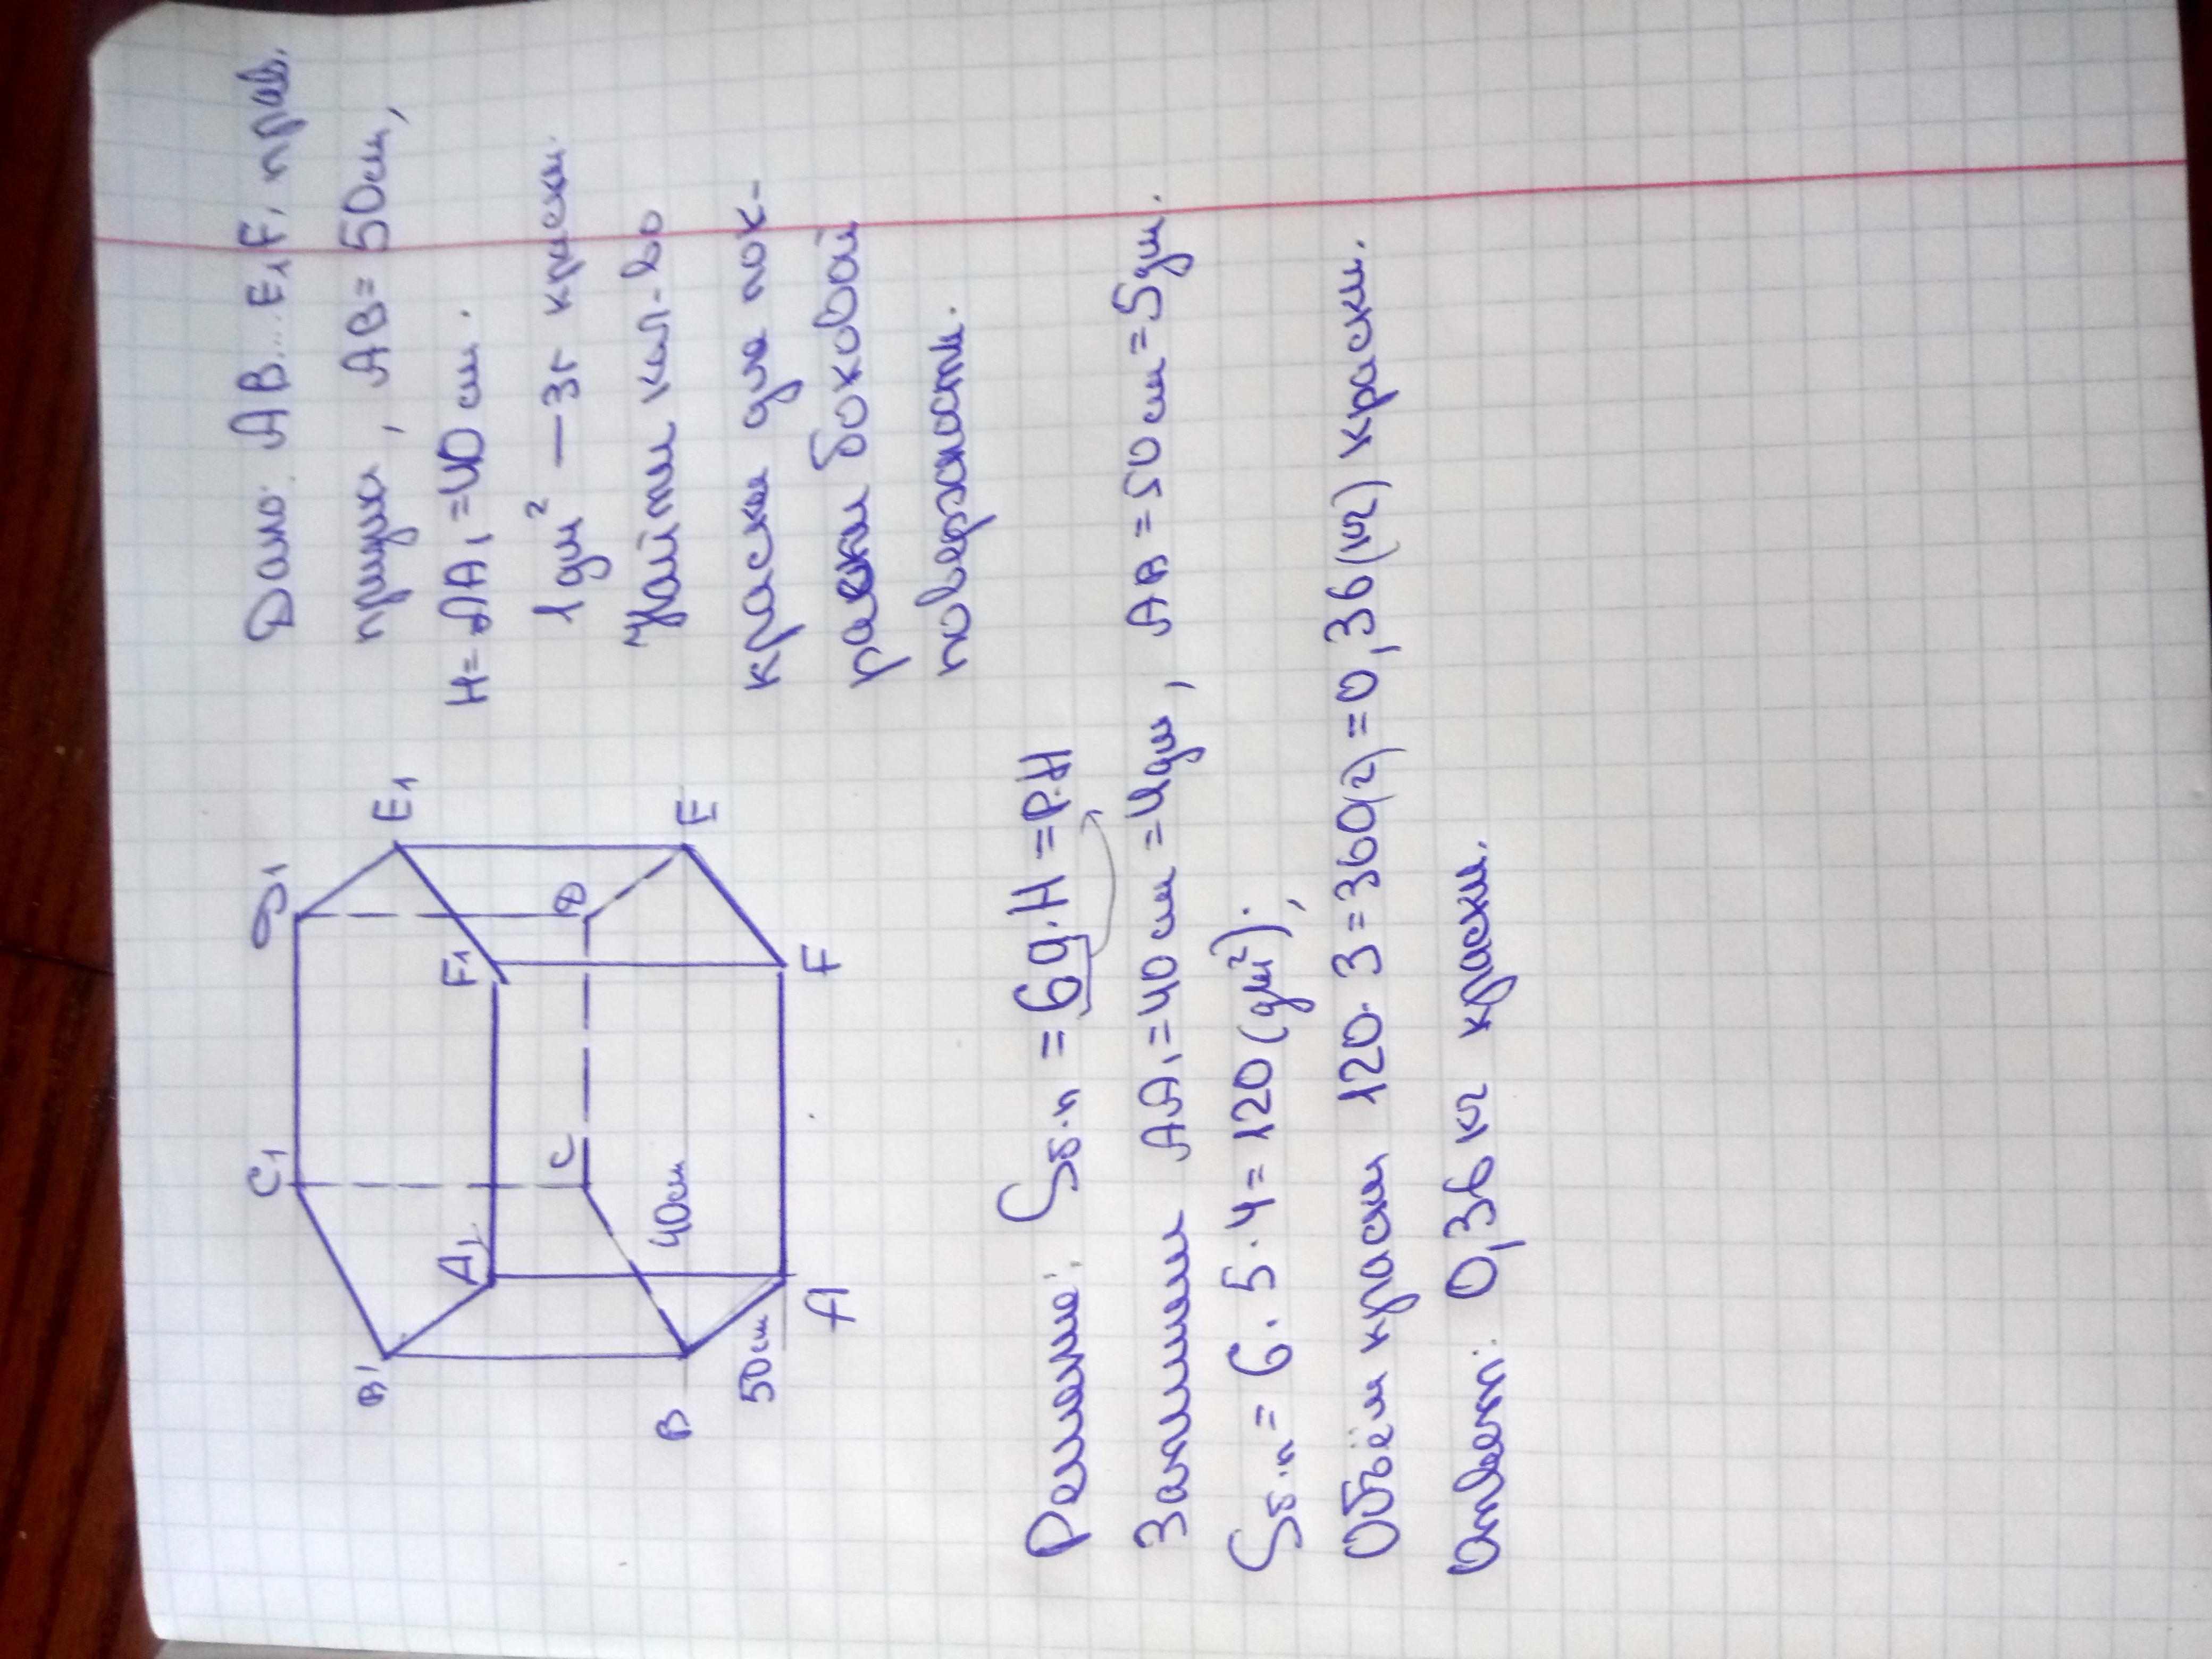 Дано: AB...E₁F₁ прав.
призма, AB = 50см,
H = AA₁ = 40 см.
1 дм² — 3г краски.
Найти кол-во
краски для пок-
раски боковой
поверхности.
C₁ D₁
B₁ E₁
A₁ F₁
C D
B 40см E
50см
A F
Решение: Sб.п = 6a·H = P·H
Запишем AA₁ = 40 см = 4дм, AB = 50 см = 5 дм.
Sб.п = 6·5·4 = 120 (дм²);
Объём краски 120·3 = 360(г) = 0,36 (кг) краски.
Ответ: 0,36 кг краски.